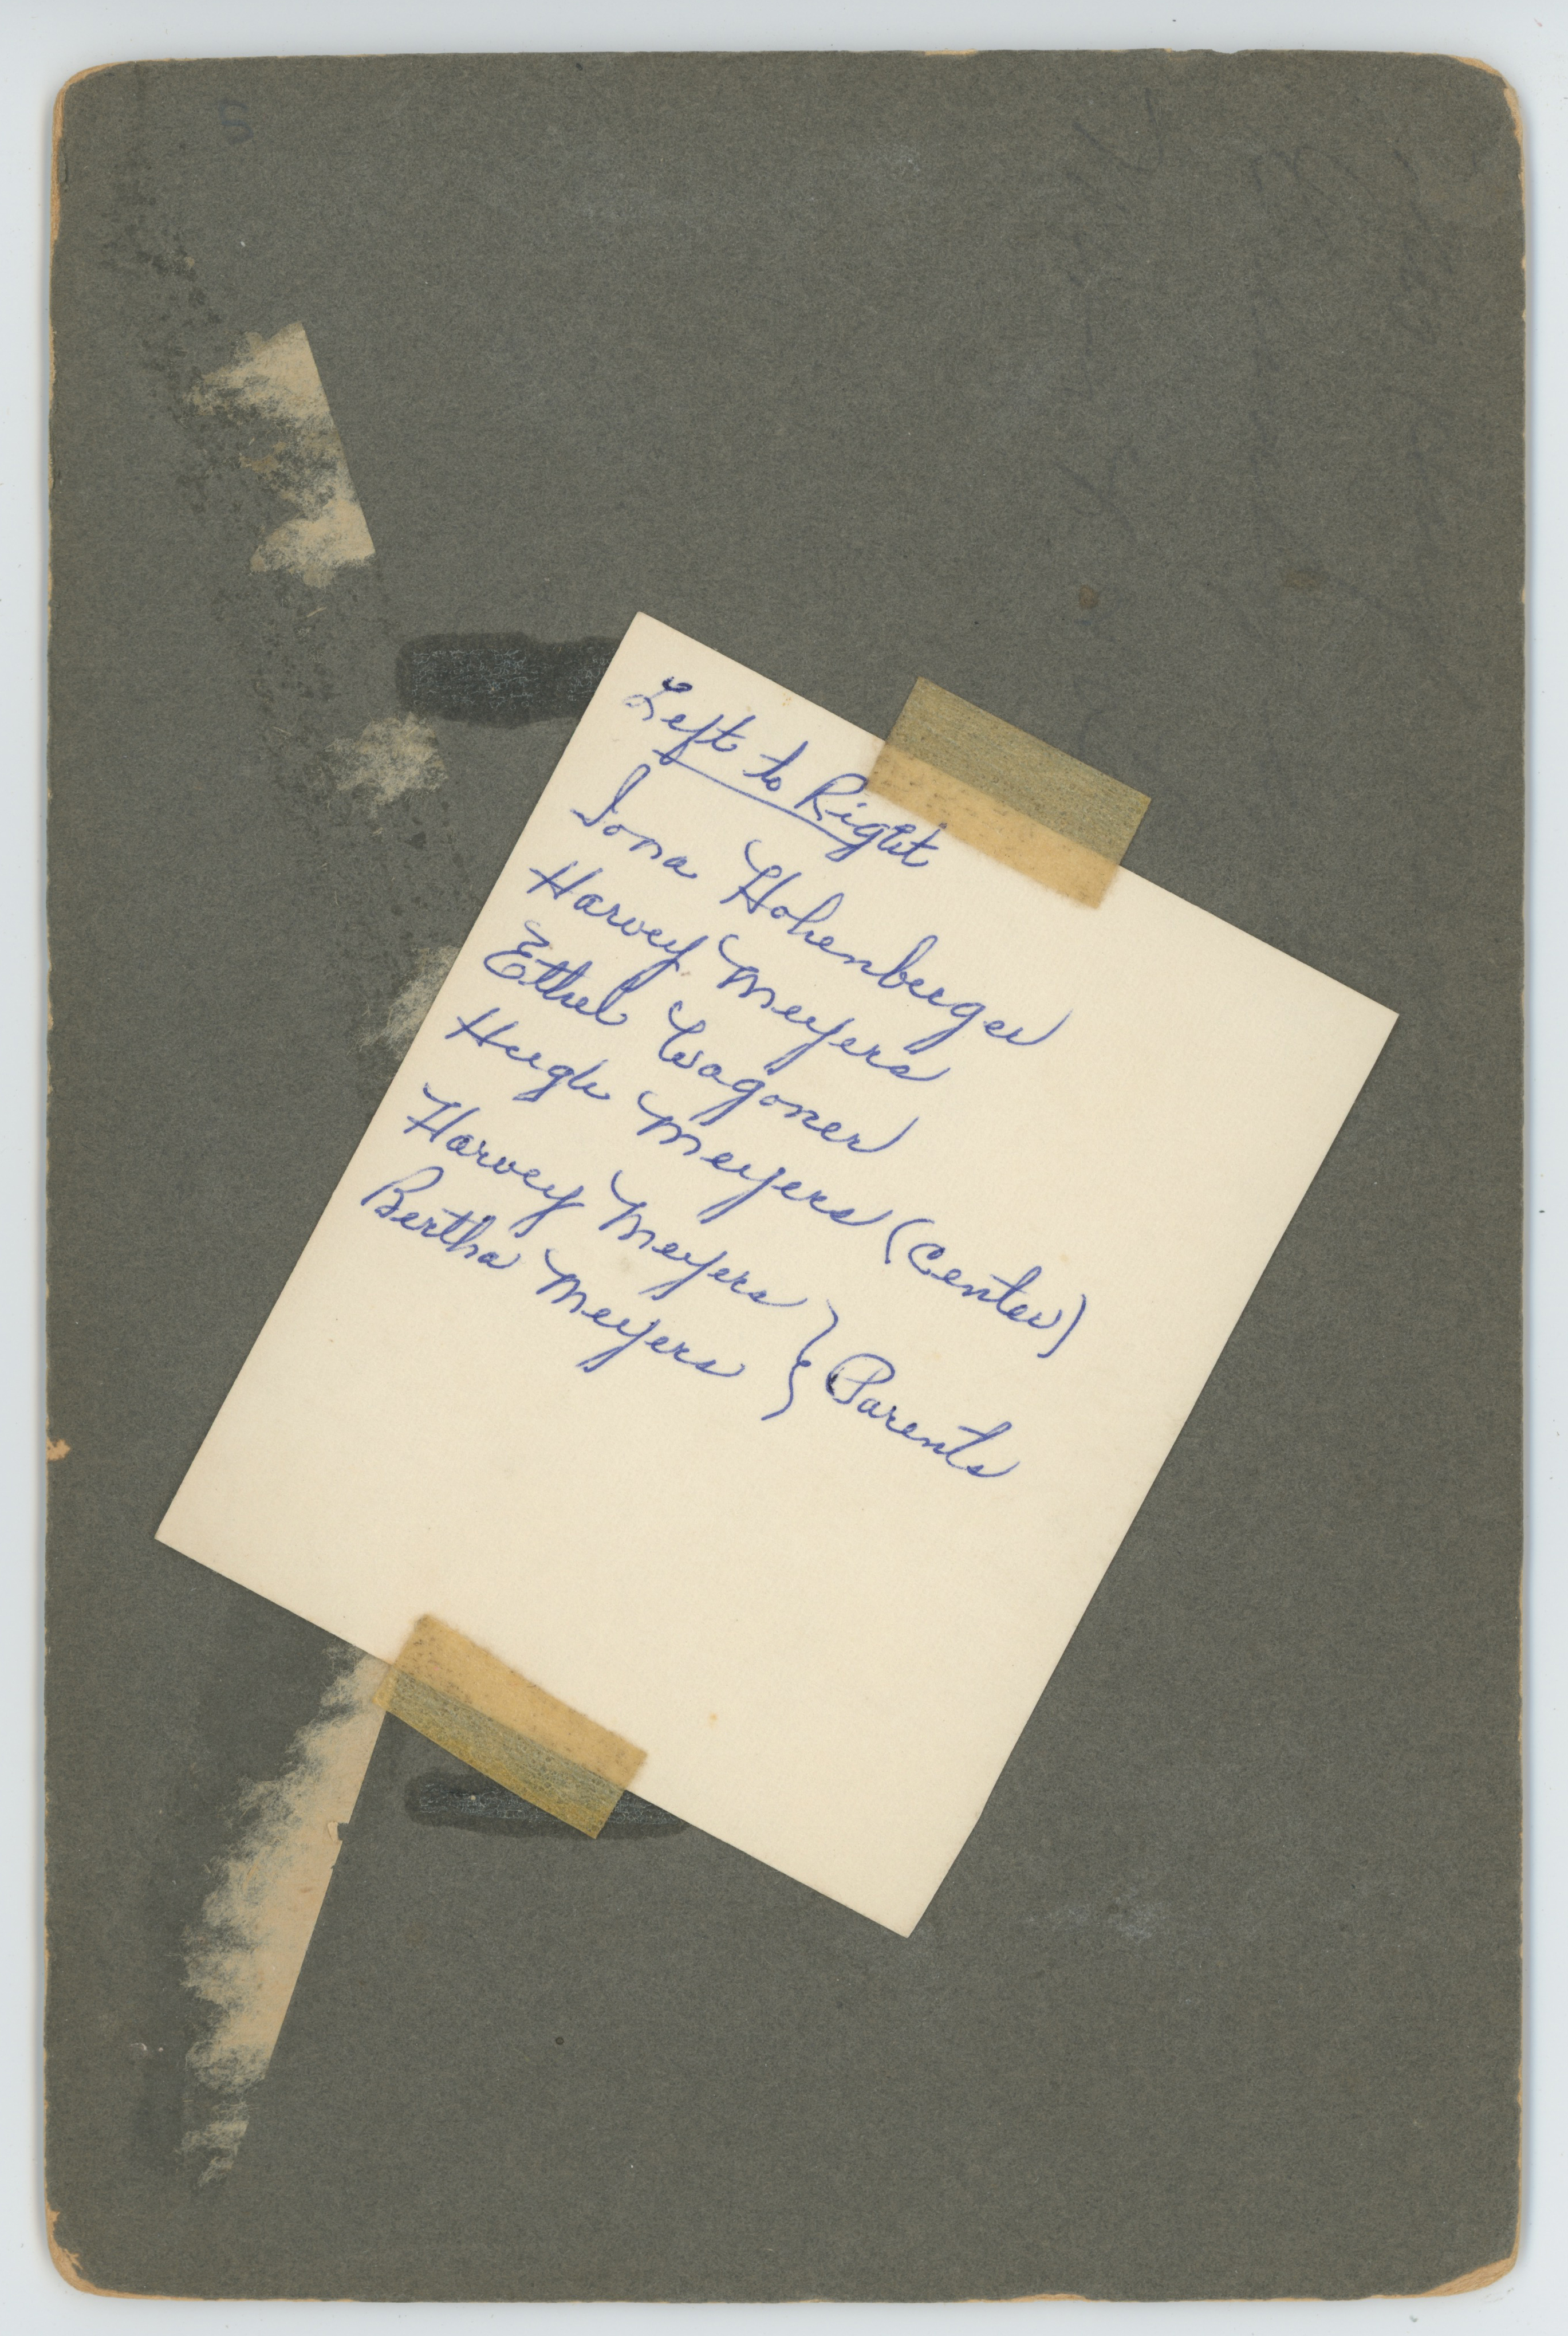 Left to Right
Iona Hohenberger
Harvey Meyers
Ethel Wagoner
Hugh Meyers (Center)
Harvey Meyers } Parents
Bertha Meyers